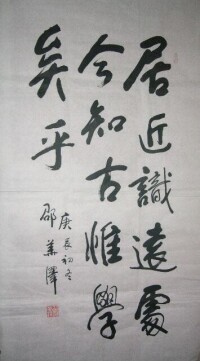 居近識遠處
今知古惟學
矣乎
庚辰初冬
邵華澤